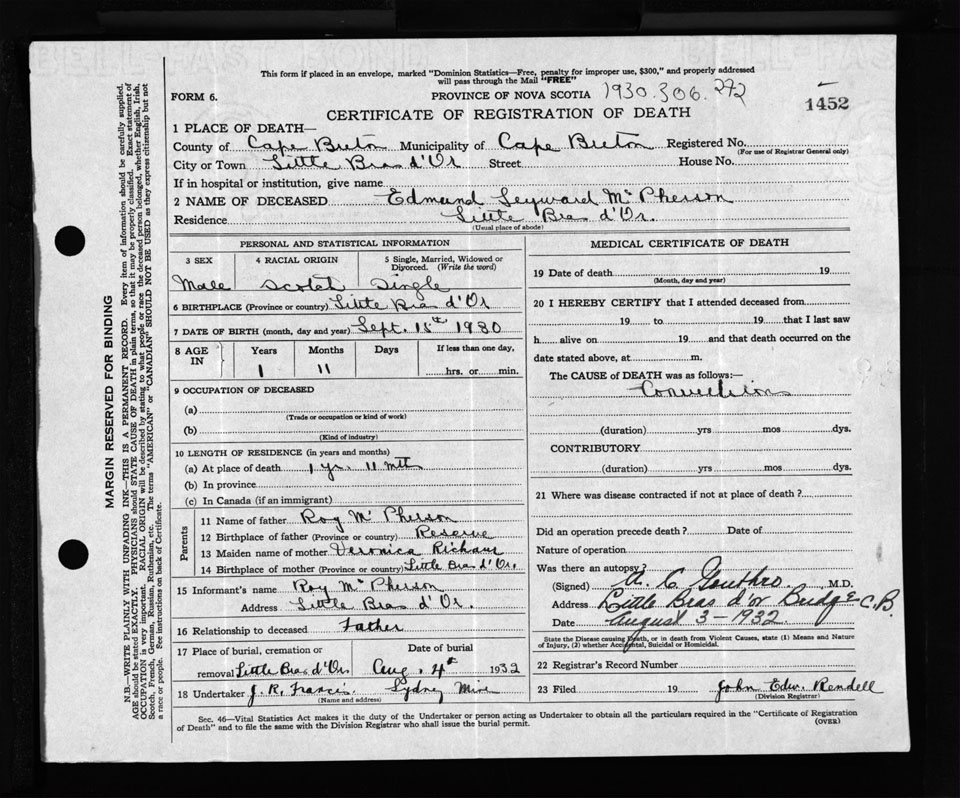 This form if placed in an envelope, marked "Dominion Statistics—Free, penalty for improper use, $300," and properly addressed
will pass through the Mail "FREE"
FORM 6.
PROVINCE OF NOVA SCOTIA 1930.306.272
1452
CERTIFICATE OF REGISTRATION OF DEATH
1 PLACE OF DEATH—
County of Cape Breton Municipality of Cape Breton Registered No.
(For use of Registrar General only)
City or Town Little Bras d'Or Street House No.
If in hospital or institution, give name
2 NAME OF DECEASED Edmund Seyward McPherson
Residence Little Bras d'Or.
(Usual place of abode)
PERSONAL AND STATISTICAL INFORMATION
3 SEX 4 RACIAL ORIGIN 5 Single, Married, Widowed or
Divorced. (Write the word)
Male Scotch Single
6 BIRTHPLACE (Province or country) Little Bras d'Or
7 DATE OF BIRTH (month, day and year) Sept. 15th 1930
8 AGE IN Years Months Days If less than one day,
1 11 hrs. or min.
9 OCCUPATION OF DECEASED
(a)
(Trade or occupation or kind of work)
(b)
(Kind of industry)
10 LENGTH OF RESIDENCE (in years and months)
(a) At place of death 1 yr. 11 mth
(b) In province
(c) In Canada (if an immigrant)
Parents
11 Name of father Roy McPherson
12 Birthplace of father (Province or country) Reserve
13 Maiden name of mother Veronica
14 Birthplace of mother (Province or country) Little Bras d'Or.
15 Informant's name Roy McPherson
Address Little Bras d'Or.
16 Relationship to deceased Father
17 Place of burial, cremation or Date of burial
removal Little Bras d'Or. Aug. 4th 1932
18 Undertaker J. R. Francis. Sydney Mine
(Name and address)
MEDICAL CERTIFICATE OF DEATH
19 Date of death 19
(Month, day and year)
20 I HEREBY CERTIFY that I attended deceased from
19 to 19 that I last saw
h alive on 19 and that death occurred on the
date stated above, at m.
The CAUSE of DEATH was as follows:—
Convulsions
(duration) yrs mos dys.
CONTRIBUTORY
(duration) yrs mos dys.
21 Where was disease contracted if not at place of death?
Did an operation precede death? Date of
Nature of operation
Was there an autopsy?
(Signed) A. C. Gouthro M.D.
Address Little Bras d'or Bridge C.B.
Date August 3-1932.
State the Disease causing Death, or in death from Violent Causes, state (1) Means and Nature
of Injury, (2) whether Accidental, Suicidal or Homicidal.
22 Registrar's Record Number
23 Filed 19 John Edw. Rendell
(Division Registrar)
Sec. 46—Vital Statistics Act makes it the duty of the Undertaker or person acting as Undertaker to obtain all the particulars required in the "Certificate of Registration
of Death" and to file the same with the Division Registrar who shall issue the burial permit.
(OVER)
MARGIN RESERVED FOR BINDING
N.B.—WRITE PLAINLY WITH UNFADING INK—THIS IS A PERMANENT RECORD. Every item of information should be carefully supplied.
AGE should be stated EXACTLY. PHYSICIANS should STATE CAUSE OF DEATH in plain terms, so that it may be properly classified. Exact statement of
OCCUPATION is very important. RACIAL ORIGIN will be described by stating to what people or race the deceased person belonged, whether English, Irish,
Scotch, French, German, Russian, Ruthenian, etc. The terms "AMERICAN" or "CANADIAN" SHOULD NOT BE USED as they express citizenship but not
a race or people. See instructions on back of Certificate.